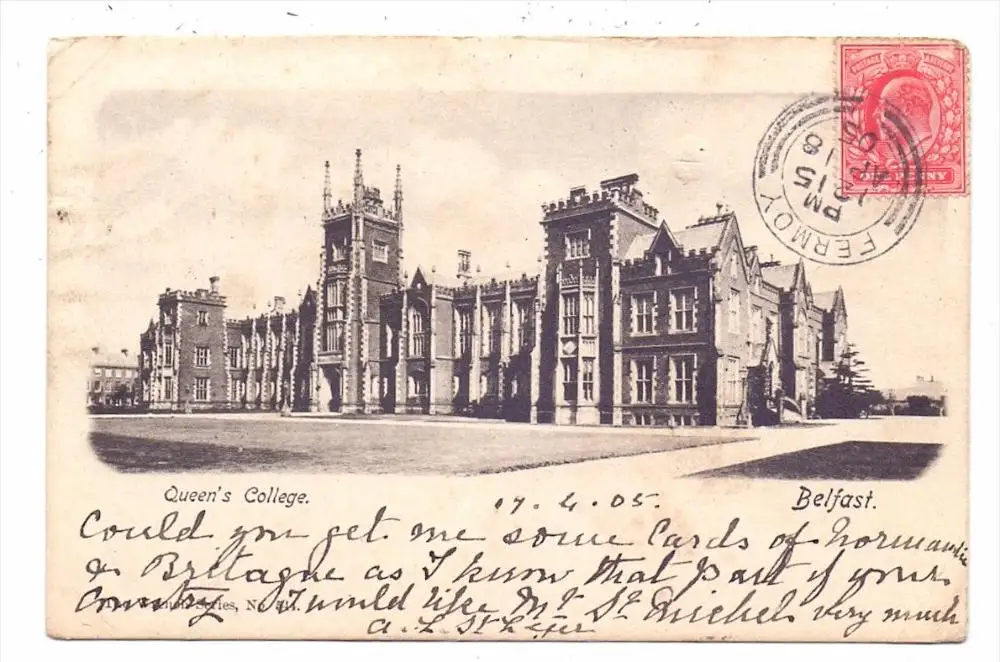 POSTAGE REVENUE
ONE PENNY
FERMOY
1215 PM
AP 18
05
Queen's College.
17.4.05.
Belfast.
Could you get me some Cards of Normandie
& Bretagne as I know that part of your
Country I would like Mt St Michel very much
Series, No.
A. L. St